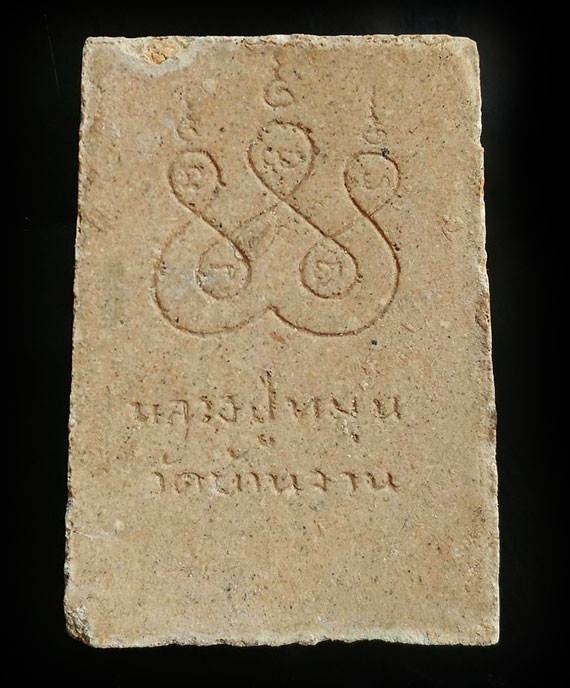 หลวงปู่หมุน
วัดบ้านจาน